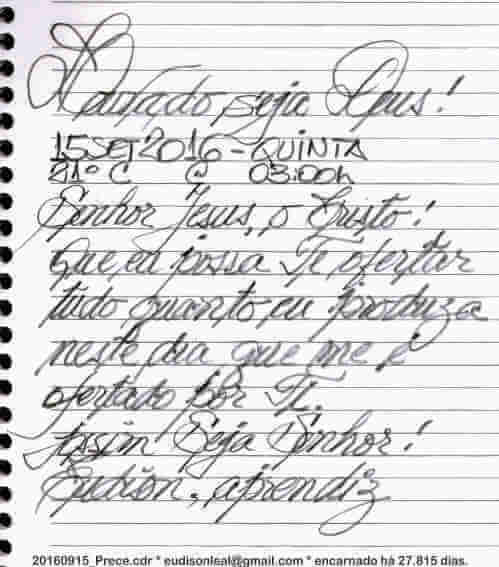 Louvado seja Deus!
15SET2016-QUINTA
21°C @ 03:00h
Senhor Jesus, o Cristo!
Que eu possa Te ofertar
tudo quanto eu produza
neste dia que me é
ofertado por Ti.
Assim Seja Senhor!
Eudison, aprendiz
20160915_Prece.cdr * eudisonleal@gmail.com * encarnado há 27.815 dias.